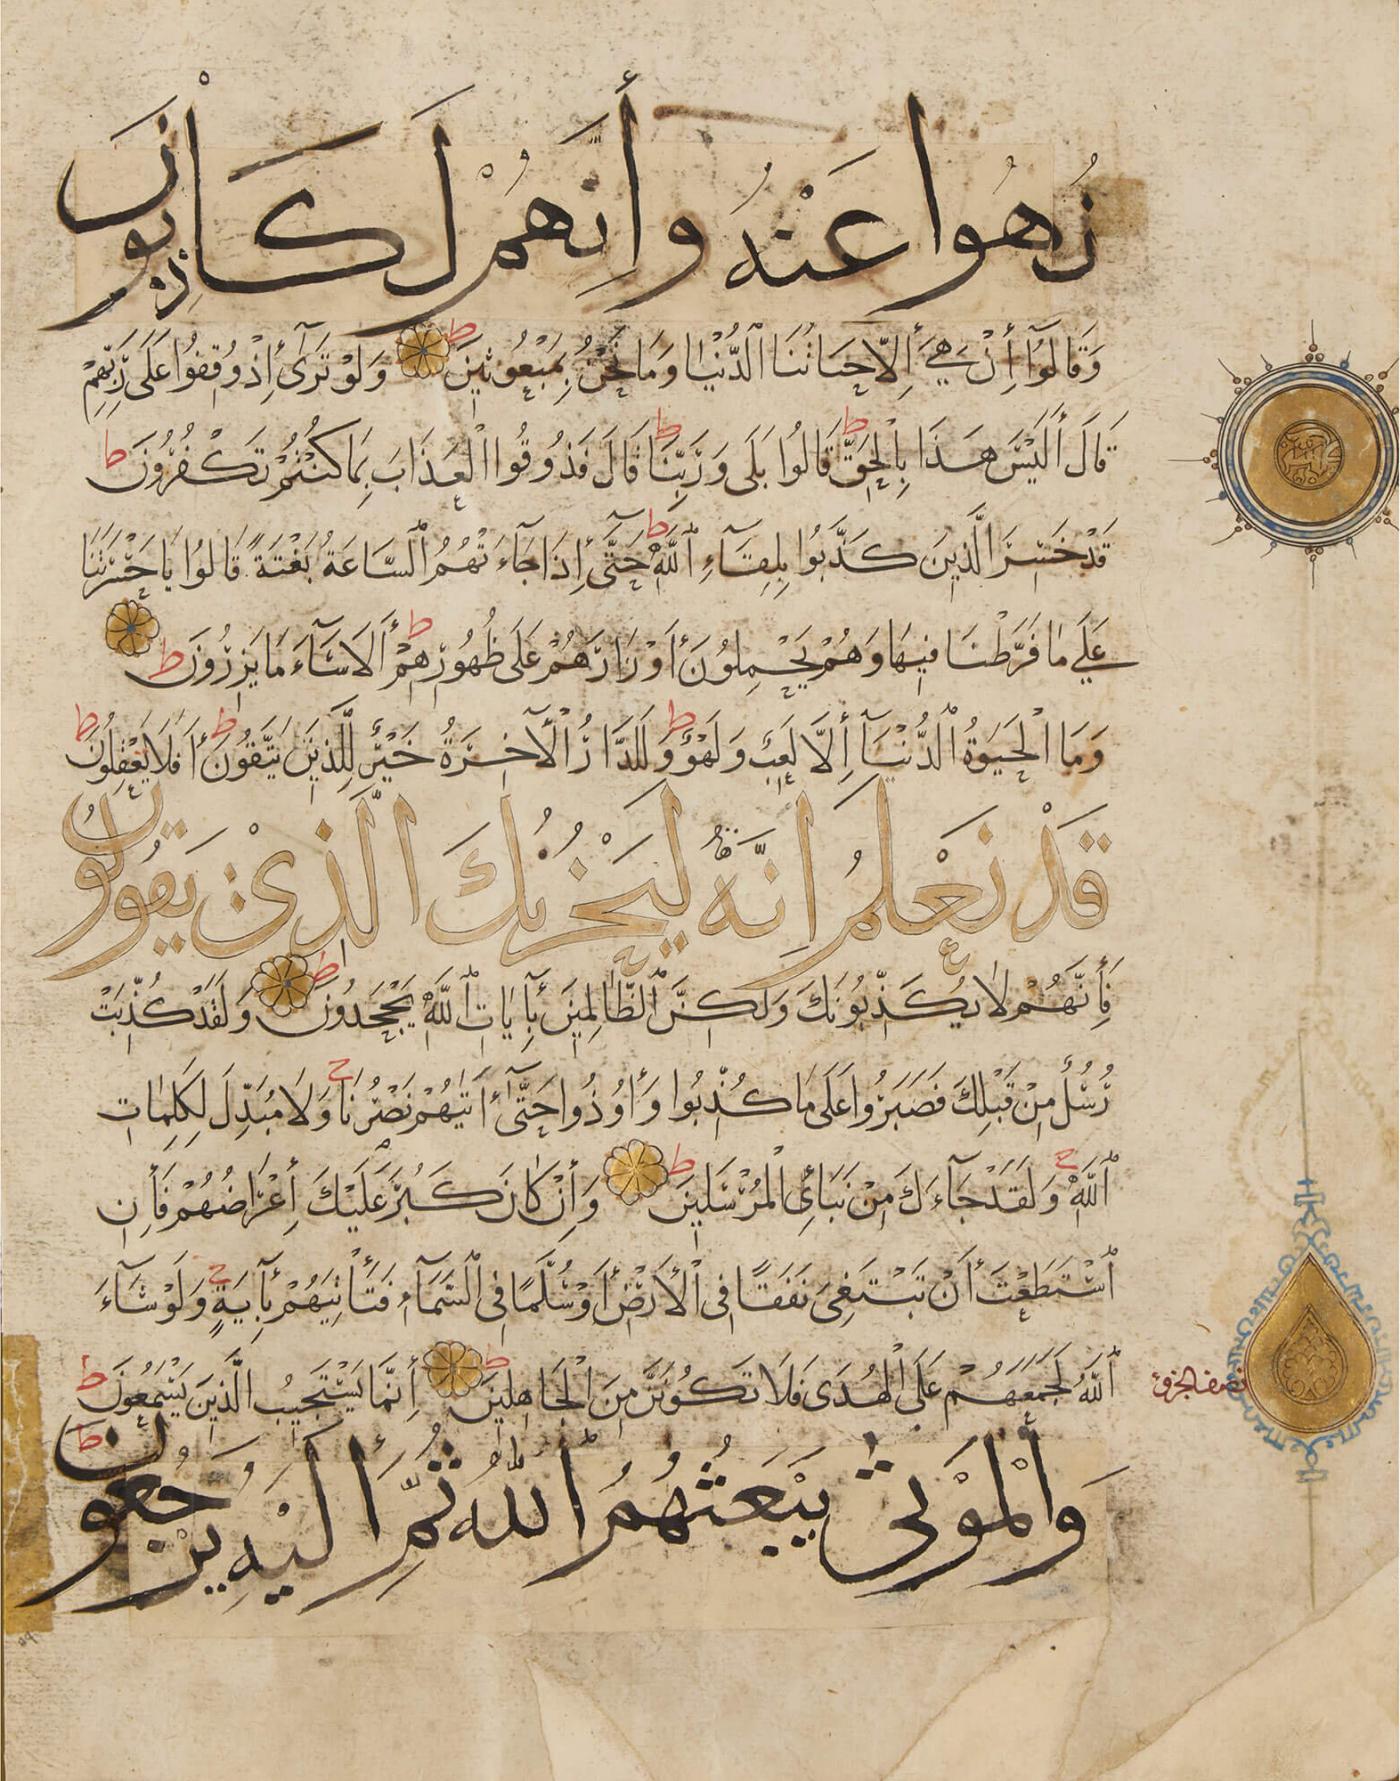 نُهُوا عَنْهُ وَأِنَّهُمْ لَكَاذِبُونَ
وَقَالُوٓا أِنْ هِيَ أِلَّا حَيَاتُنَا الدُّنْيَا وَمَا نَحْنُ بِمَبْعُوثِينَ ط وَلَوْ تَرَىٓ أِذْ وُقِفُوا عَلَى رَبِّهِمْ
قَالَ أَلَيْسَ هَذَا بِالْحَقِّ ط قَالُوا بَلَى وَرَبِّنَا ط قَالَ فَذُوقُوا الْعَذَابَ بِمَا كُنْتُمْ تَكْفُرُونَ ط
قَدْ خَسِرَ الَّذِينَ كَذَّبُوا بِلِقَآءِ اللَّهِ ط حَتَّىٓ أِذَا جَآءَتْهُمُ السَّاعَةُ بَغْتَةً قَالُوا يَا حَسْرَتَنَا
عَلَى مَا فَرَّطْنَا فِيهَا وَهُمْ يَحْمِلُونَ أَوْزَارَهُمْ عَلَى ظُهُورِهِمْ ط أَلَا سَآءَ مَا يَزِرُونَ ط
وَمَا الْحَيَوةُ الدُّنْيَآ أِلَّا لَعِبٌ وَلَهْوٌ ط وَلَلدَّارُ الْآخِرَةُ خَيْرٌ لِلَّذِينَ يَتَّقُونَ ط أَفَلَا يَعْقِلُونَ ط
قَدْ نَعْلَمُ اِنَّهُ لَيَحْزُنُكَ الَّذِىْ يَقُولُونَ
فَأِنَّهُمْ لَا يُكَذِّبُونَكَ وَلَكِنَّ الظَّالِمِينَ بِآيَاتِ اللَّهِ يَجْحَدُونَ ط وَلَقَدْ كُذِّبَتْ
رُسُلٌ مِنْ قَبْلِكَ فَصَبَرُوا عَلَى مَا كُذِّبُوا وَأُوذُوا حَتَّىٓ أَتَيهُمْ نَصْرُنَا ح وَلَا مُبَدِّلَ لِكَلِمَاتِ
اللَّهِ ح وَلَقَدْ جَآءَكَ مِنْ نَبَأِى الْمُرْسَلِينَ ط وَأِنْ كَانَ كَبُرَ عَلَيْكَ أِعْرَاضُهُمْ فَأِنِ
اسْتَطَعْتَ أَنْ تَبْتَغِىَ نَفَقًا فِى الْأَرْضِ أَوْ سُلَّمًا فِى السَّمَآءِ فَتَأْتِيَهُمْ بِآيَةٍ ح وَلَوْ شَآءَ
اللَّهُ لَجَمَعَهُمْ عَلَى الْهُدَى فَلَا تَكُونَنَّ مِنَ الْجَاهِلِينَ ط أِنَّمَا يَسْتَجِيبُ الَّذِينَ يَسْمَعُونَ ط
نصف الجزو
وَالْمَوْتَى يَبْعَثُهُمُ اللَّهُ ثُمَّ أِلَيْهِ يُرْجَعُونَ ط